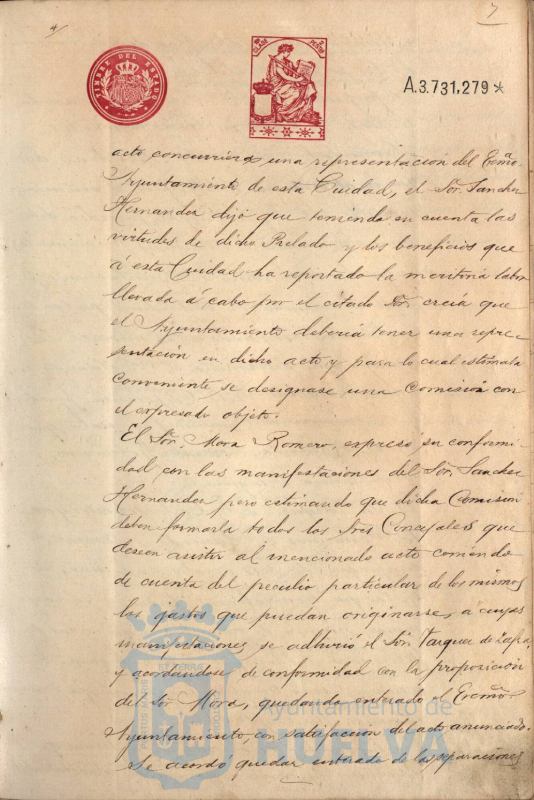 7
TIMBRE DEL ESTADO
CLASE
PESETA
A.3.731,279*
acto concurriera una representación del Excmo.
Ayuntamiento de esta Ciudad, el Sor. Sanchez
Hernandez dijo que teniendo en cuenta las
virtudes de dicho Prelado y los beneficios que
á esta Ciudad ha reportado la meritoria labor
llevada á cabo por el citado Sr. creia que
el Ayuntamiento deberia tener una repre-
sentación en dicho acto y para lo cual estimaba
conveniente, se designase una Comisión con
el expresado objeto.
El Sor. Mora Romero, expresó su conformi-
dad con las manifestaciones del Sor. Sanchez
Hernandez pero estimando que dicha Comisión
deben formarla todos los Sres Concejales que
deseen asistir al mencionado acto corriendo
de cuenta del peculio particular de los mismos
los gastos que puedan originarse, á cuyas
manifestaciones se adhirió el Sor. Vazquez de Zafra,
y acordandose de conformidad con la proposición
del Sor Mora, quedando enterado el Excmo.
Ayuntamiento, con satisfacción del acto anunciado.
Se acordó quedar enterado de las reparaciones
Ayuntamiento de
HUELVA